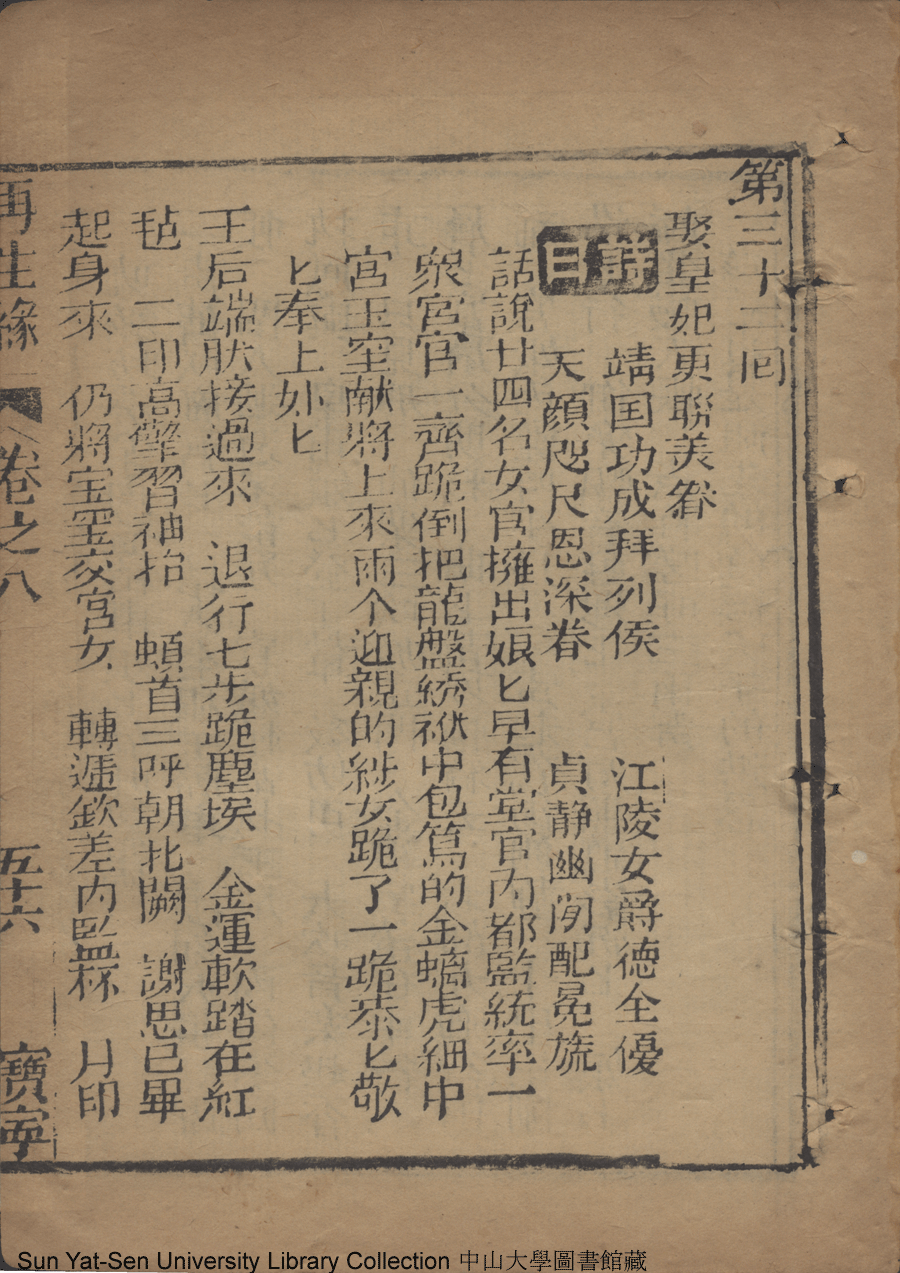 第三十二囘
娶皇妃更聯美眷
靖国功成拜列侯　江陵女爵德全優
詩曰
天顔咫尺恩深眷　貞静幽閑配冕旒
話說廿四名女官擁出娘匕早有堂官內都監統率一
衆宮官一齊跪倒把龍盤綉袱中包篤的金螭虎細中
宮玉空献將上來兩个迎親的綵女跪了一跪泰匕敬
匕奉上妳匕
王后端肰接過來　退行七步跪塵埃　金運軟踏在紅
毡　二印高擎習袖抬　頓首三呼朝北闕　謝思已畢
起身來　仍將宝玺交宮女　轉遞欽差內監杯　月印
再生緣　卷之八　五十六　寶寧
Sun Yat-Sen University Library Collection 中山大學圖書館藏